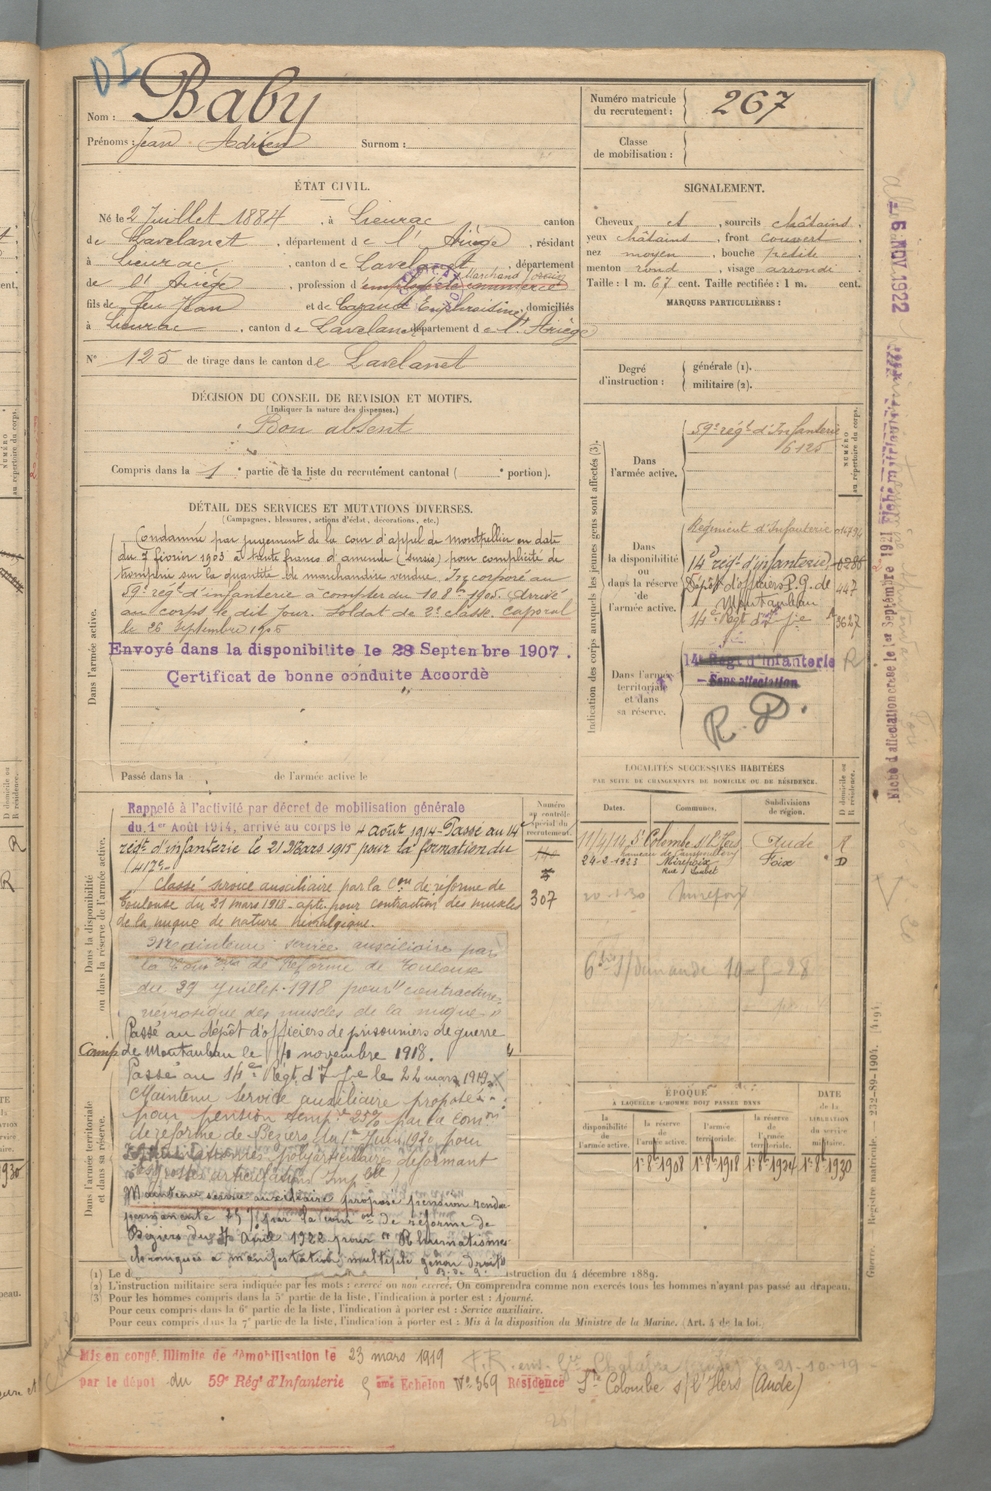 DI
Nom : Baby
Prénoms : Jean Adrien Surnom :
Numéro matricule du recrutement : 267
Classe de mobilisation :
ÉTAT CIVIL.
Né le 2 Juillet 1884, à Lieurac canton
de Lavelanet, département de l'Ariège, résidant
à Lieurac, canton de Lavelanet, département
de l'Ariège, profession d employé de commerce Marchand
fils de feu Jean et de Cazaud Euphraisine, domiciliés
à Lieurac, canton de Lavelanet département de l'Ariège
N° 125 de tirage dans le canton de Lavelanet
SIGNALEMENT.
Cheveux et, sourcils châtains
yeux châtains, front couvert
nez moyen, bouche petite
menton rond, visage arrondi
Taille : 1 m. 67 cent. Taille rectifiée : 1 m. cent.
MARQUES PARTICULIÈRES :
Degré d'instruction : générale (1).
militaire (2).
DÉCISION DU CONSEIL DE REVISION ET MOTIFS.
(Indiquer la nature des dispenses.)
Bon absent
Compris dans la 1e partie de la liste du recrutement cantonal ( e portion).
DÉTAIL DES SERVICES ET MUTATIONS DIVERSES.
(Campagnes, blessures, actions d'éclat, décorations, etc.)
Dans l'armée active.
Condamné par jugement de la cour d'appel de Montpellier en date
du 7 février 1903 à trente francs d'amende (sursis) pour complicité de
tromperie sur la quantité de marchandise vendue. Incorporé au
59e rég. d'infanterie à compter du 10 8bre 1905. Arrivé
au corps le dit jour. Soldat de 2e classe. Caporal
le 26 Septembre 1906
Envoyé dans la disponibilité le 28 Septembre 1907.
Certificat de bonne conduite Accordé
Passé dans la de l'armée active le
Indication des corps auxquels les jeunes gens sont affectés (3).
NUMÉRO au répertoire du corps.
Dans l'armée active.
59e rég. d'Infanterie
6125
Dans la disponibilité ou dans la réserve de l'armée active.
Régiment d'Infanterie
14e rég. d'infanterie
Dépôt d'officiers P.G. de 447
Montauban
14e Rég. d'Ije 3627
Dans l'armée territoriale et dans sa réserve.
14e Régt d'Infanterie R
Sans affectation
R.D.
6 NOV 1922
Fiché d'affectation créée le 1er Septembre 1921
Dans la disponibilité ou dans la réserve de l'armée active.
Numéro au contrôle spécial du recrutement.
307
Rappelé à l'activité par décret de mobilisation générale
du 1er Août 1914, arrivé au corps le 4 août 1914 - Passé au 14e
régt d'infanterie le 21 Mars 1915 pour la formation du
417e.
Classé service auxiliaire par la Con de réforme de
Toulouse du 21 mars 1918 - apte - pour contraction des muscles
de la nuque de nature névralgique.
Maintenu service auxiliaire par
la Con de Réforme de Toulouse
du 29 Juillet 1918 pour contracture
névrosique des muscles de la nuque
Passé au dépôt d'officiers de prisonniers de guerre
Camp de Montauban le novembre 1918.
Passé au 14e Régt d'Ije le 22 mars 1919
Maintenu Service auxiliaire proposé
pour pension temp. 25% par la Comon
de réforme de Béziers du 1er Juin 1920 pour
polyarticulaire déformant
Maintenu service auxiliaire proposé pension
permanente par la comon de réforme de
Béziers du avril 1922 pour Rhumatismes
chroniques à manifestations multiples genou droit
Dans l'armée territoriale et dans sa réserve.
LOCALITÉS SUCCESSIVES HABITÉES
PAR SUITE DE CHANGEMENTS DE DOMICILE OU DE RÉSIDENCE.
D domicile ou R résidence.
Dates. Communes. Subdivisions de région.
11/4/14 Ste Colombe s/l'Hers Aude R
24-2-1923 Mirepoix Foix D
20-1-30 Mirepoix
demande 10-5-28
ÉPOQUE
À LAQUELLE L'HOMME DOIT PASSER DANS
la disponibilité de l'armée active. la réserve de l'armée active. l'armée territoriale. la réserve de l'armée territoriale.
DATE de la LIBÉRATION du service militaire.
1er 8bre 1908 1er 8bre 1918 1er 8bre 1924 1er 8bre 1930
Guerre. — Registre matricule. — 232-89-1904. [419].
(1) Le d struction du 4 décembre 1889.
(2) L'instruction militaire sera indiquée par les mots : exercé ou non exercé. On comprendra comme non exercés tous les hommes n'ayant pas passé au drapeau.
(3) Pour les hommes compris dans la 5e partie de la liste, l'indication à porter est : Ajourné.
Pour ceux compris dans la 6e partie de la liste, l'indication à porter est : Service auxiliaire.
Pour ceux compris dans la 7e partie de la liste, l'indication à porter est : Mis à la disposition du Ministre de la Marine. (Art. 4 de la loi.
Mis en congé illimité de démobilisation le 23 mars 1919
par le dépôt du 59e Rég' d'Infanterie 5ème Echelon N° 369 Résidence Ste Colombe s/l'Hers (Aude)